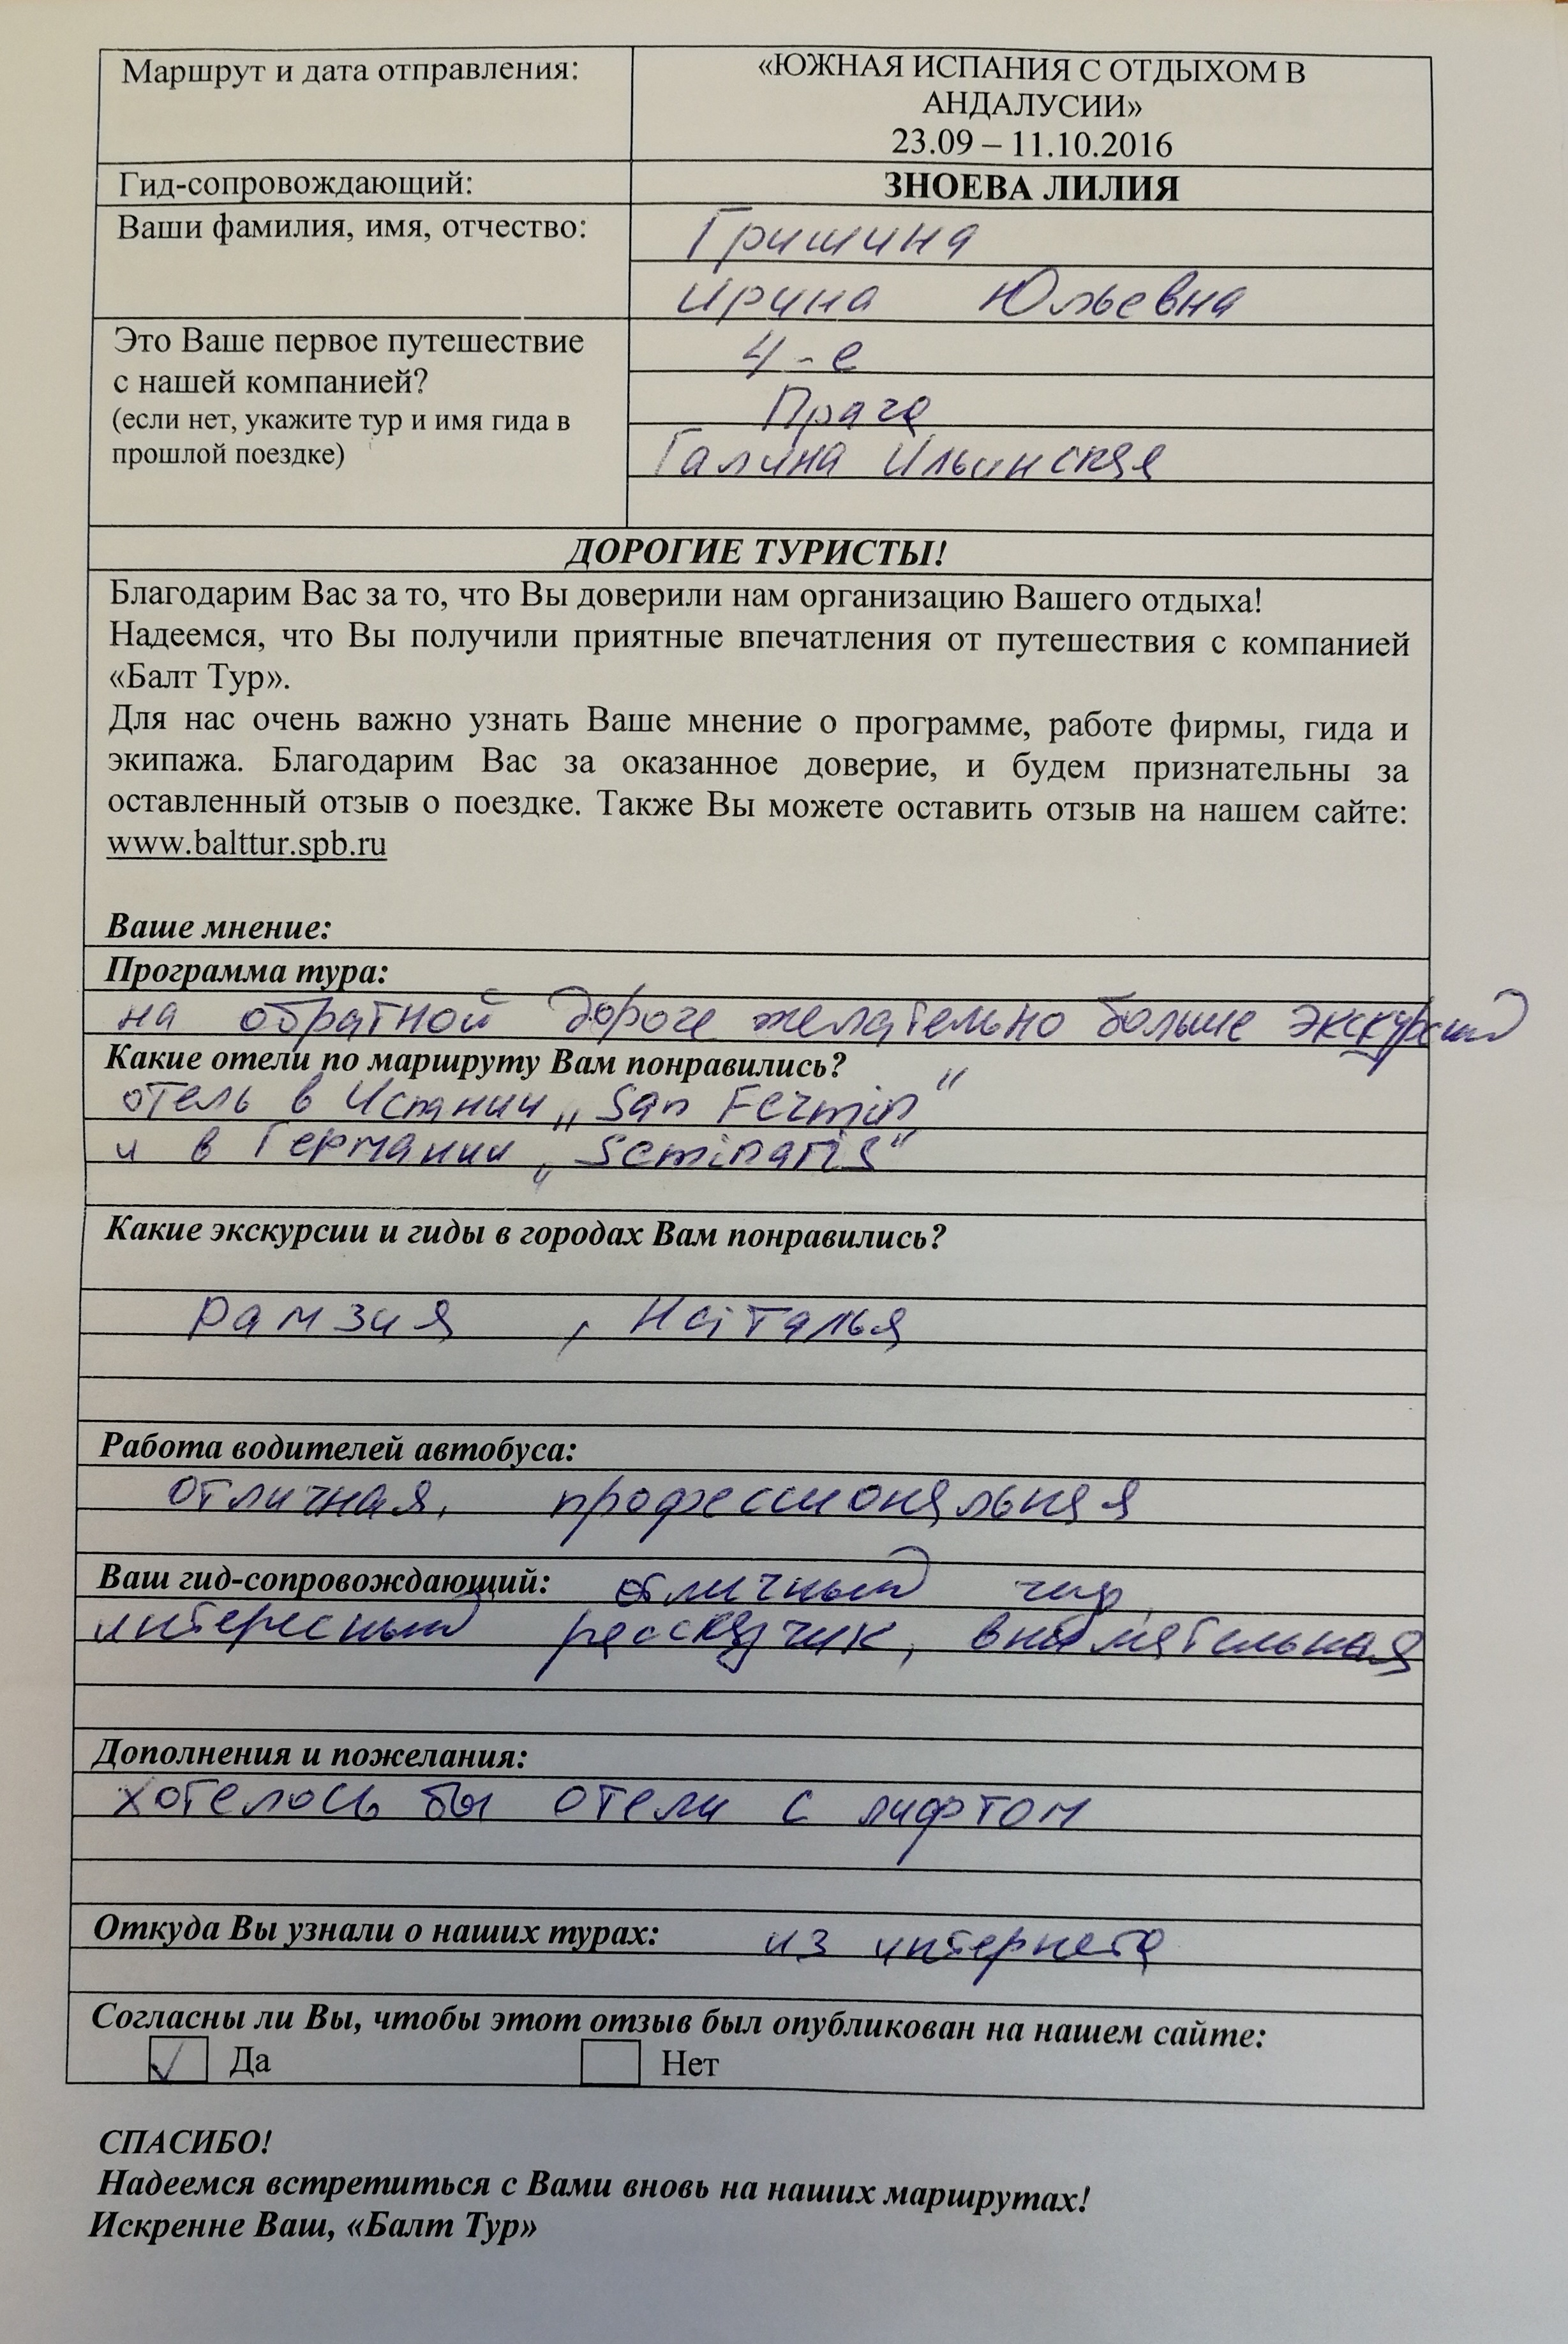 Маршрут и дата отправления:
«ЮЖНАЯ ИСПАНИЯ С ОТДЫХОМ В
АНДАЛУСИИ»
23.09 – 11.10.2016
Гид-сопровождающий:
ЗНОЕВА ЛИЛИЯ
Ваши фамилия, имя, отчество:
Гришина
Ирина Юльевна
Это Ваше первое путешествие
с нашей компанией?
(если нет, укажите тур и имя гида в
прошлой поездке)
4-е
Прага
Галина Ильинская
ДОРОГИЕ ТУРИСТЫ!
Благодарим Вас за то, что Вы доверили нам организацию Вашего отдыха!
Надеемся, что Вы получили приятные впечатления от путешествия с компанией
«Балт Тур».
Для нас очень важно узнать Ваше мнение о программе, работе фирмы, гида и
экипажа. Благодарим Вас за оказанное доверие, и будем признательны за
оставленный отзыв о поездке. Также Вы можете оставить отзыв на нашем сайте:
www.balttur.spb.ru
Ваше мнение:
Программа тура:
на обратной дороге желательно больше экскурсий
Какие отели по маршруту Вам понравились?
отель в Испании „San Fermin"
и в Германии „Seminaris"
Какие экскурсии и гиды в городах Вам понравились?
Рамзия , Наталья
Работа водителей автобуса:
отличная, профессиональная
Ваш гид-сопровождающий: отличный гид,
интересный рассказчик, внимательная
Дополнения и пожелания:
хотелось бы отели с лифтом
Откуда Вы узнали о наших турах: из интернета
Согласны ли Вы, чтобы этот отзыв был опубликован на нашем сайте:
✓ Да Нет
СПАСИБО!
Надеемся встретиться с Вами вновь на наших маршрутах!
Искренне Ваш, «Балт Тур»